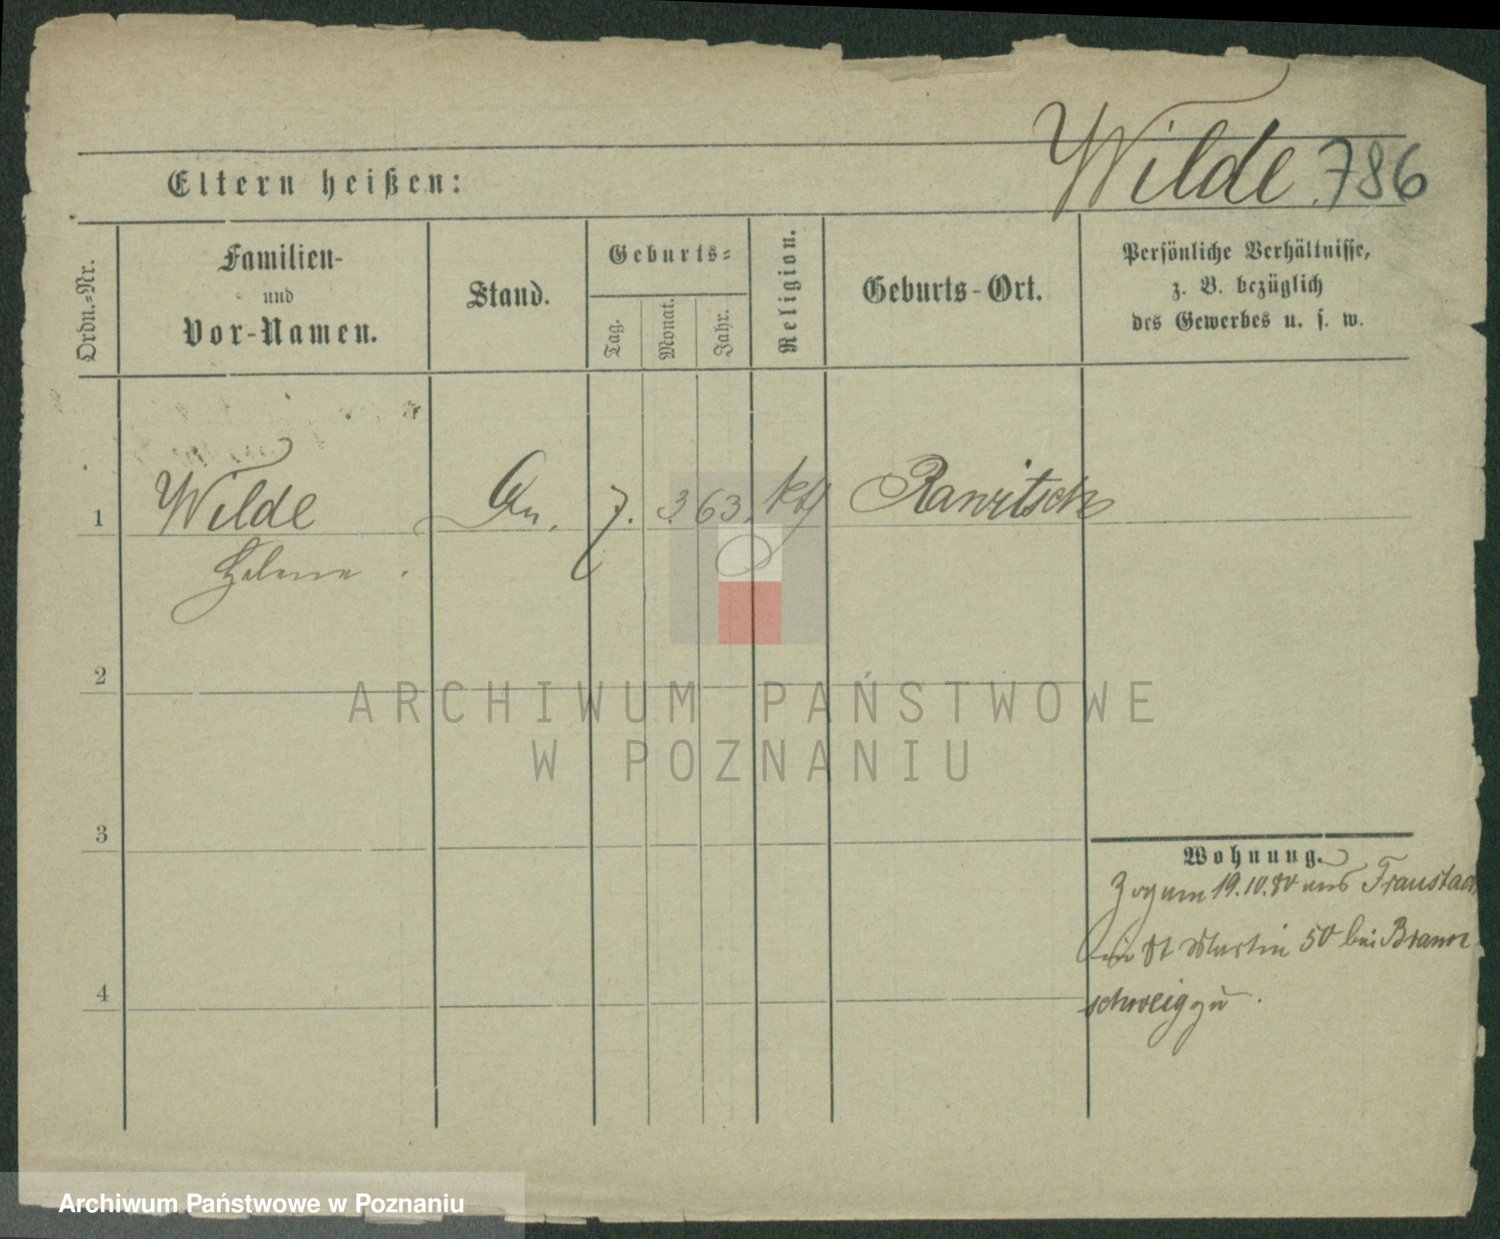 Wilde 786
Eltern heißen:
Ordn.-Nr.
Familien-
und
Vor-Namen.
Stand.
Geburts-
Tag.
Monat.
Jahr.
Religion.
Geburts-Ort.
Persönliche Verhältnisse,
z. B. bezüglich
des Gewerbes u. s. w.
1 Wilde 7. 3. 63. kth Rawitsch
Helene.
2
ARCHIWUM PAŃSTWOWE
W POZNANIU
3
Wohnung.
Zog am 19.10.80 aus Fraustadt
St Martin 50 bei Braun
schweig zu.
4
Archiwum Państwowe w Poznaniu